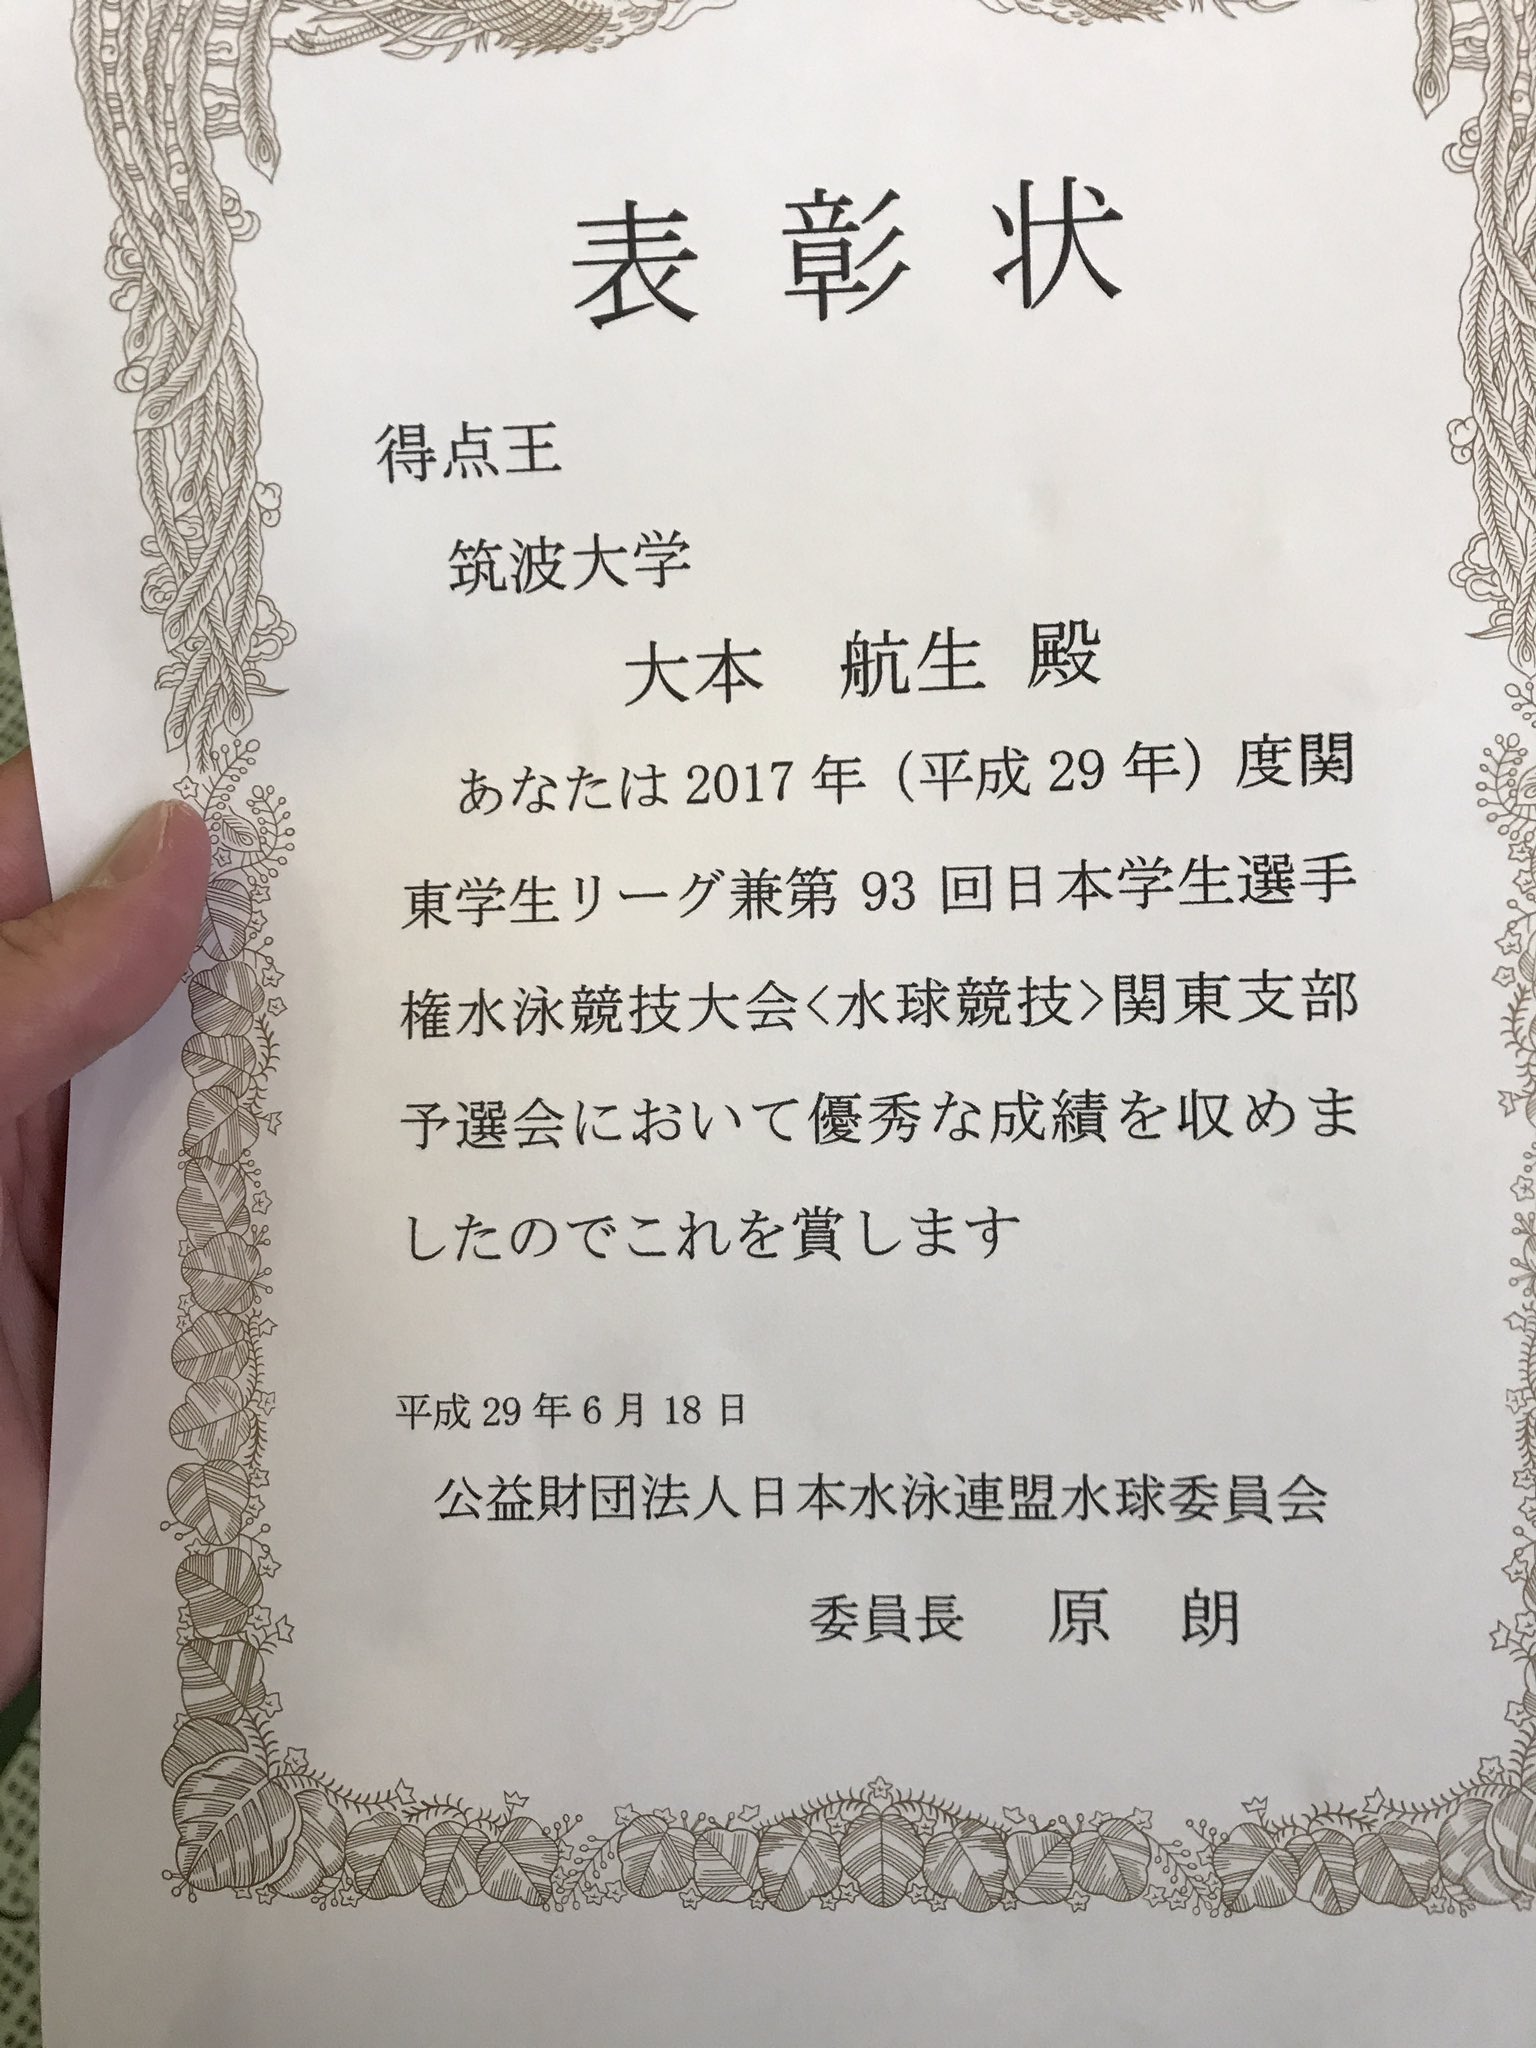 表彰状
得点王
筑波大学
大本 航生 殿
あなたは2017年（平成29年）度関
東学生リーグ兼第93回日本学生選手
権水泳競技大会<水球競技>関東支部
予選会において優秀な成績を収めま
したのでこれを賞します
平成29年6月18日
公益財団法人日本水泳連盟水球委員会
委員長 原 朗